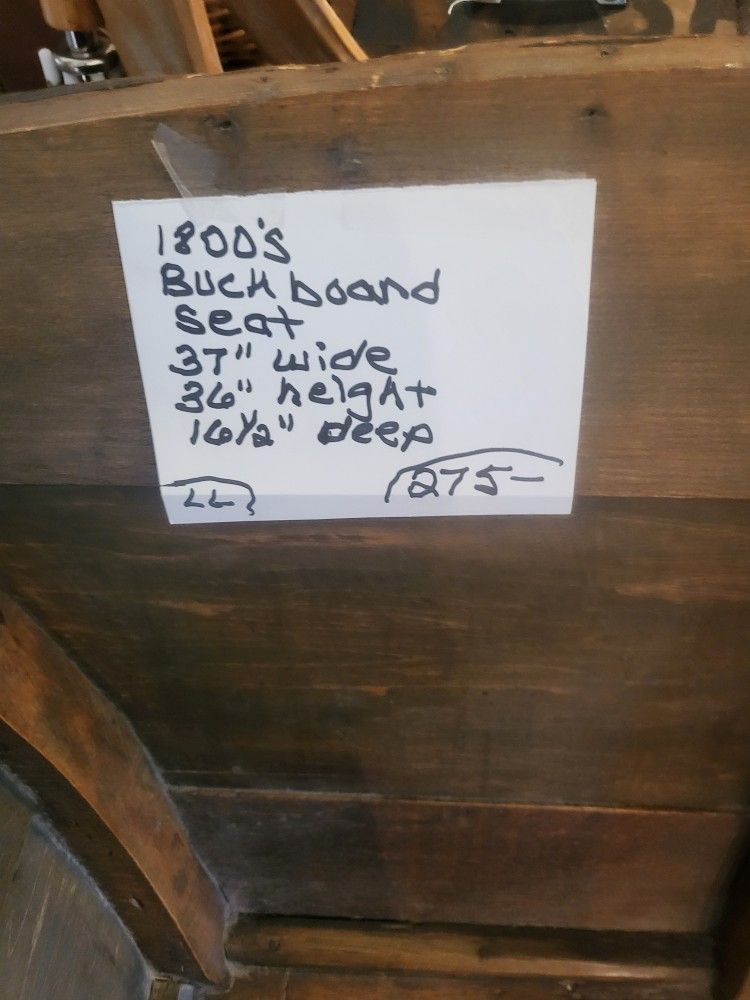 1800's
Buckboard
seat
37" wide
36" height
16 1/2" deep
LL
275-